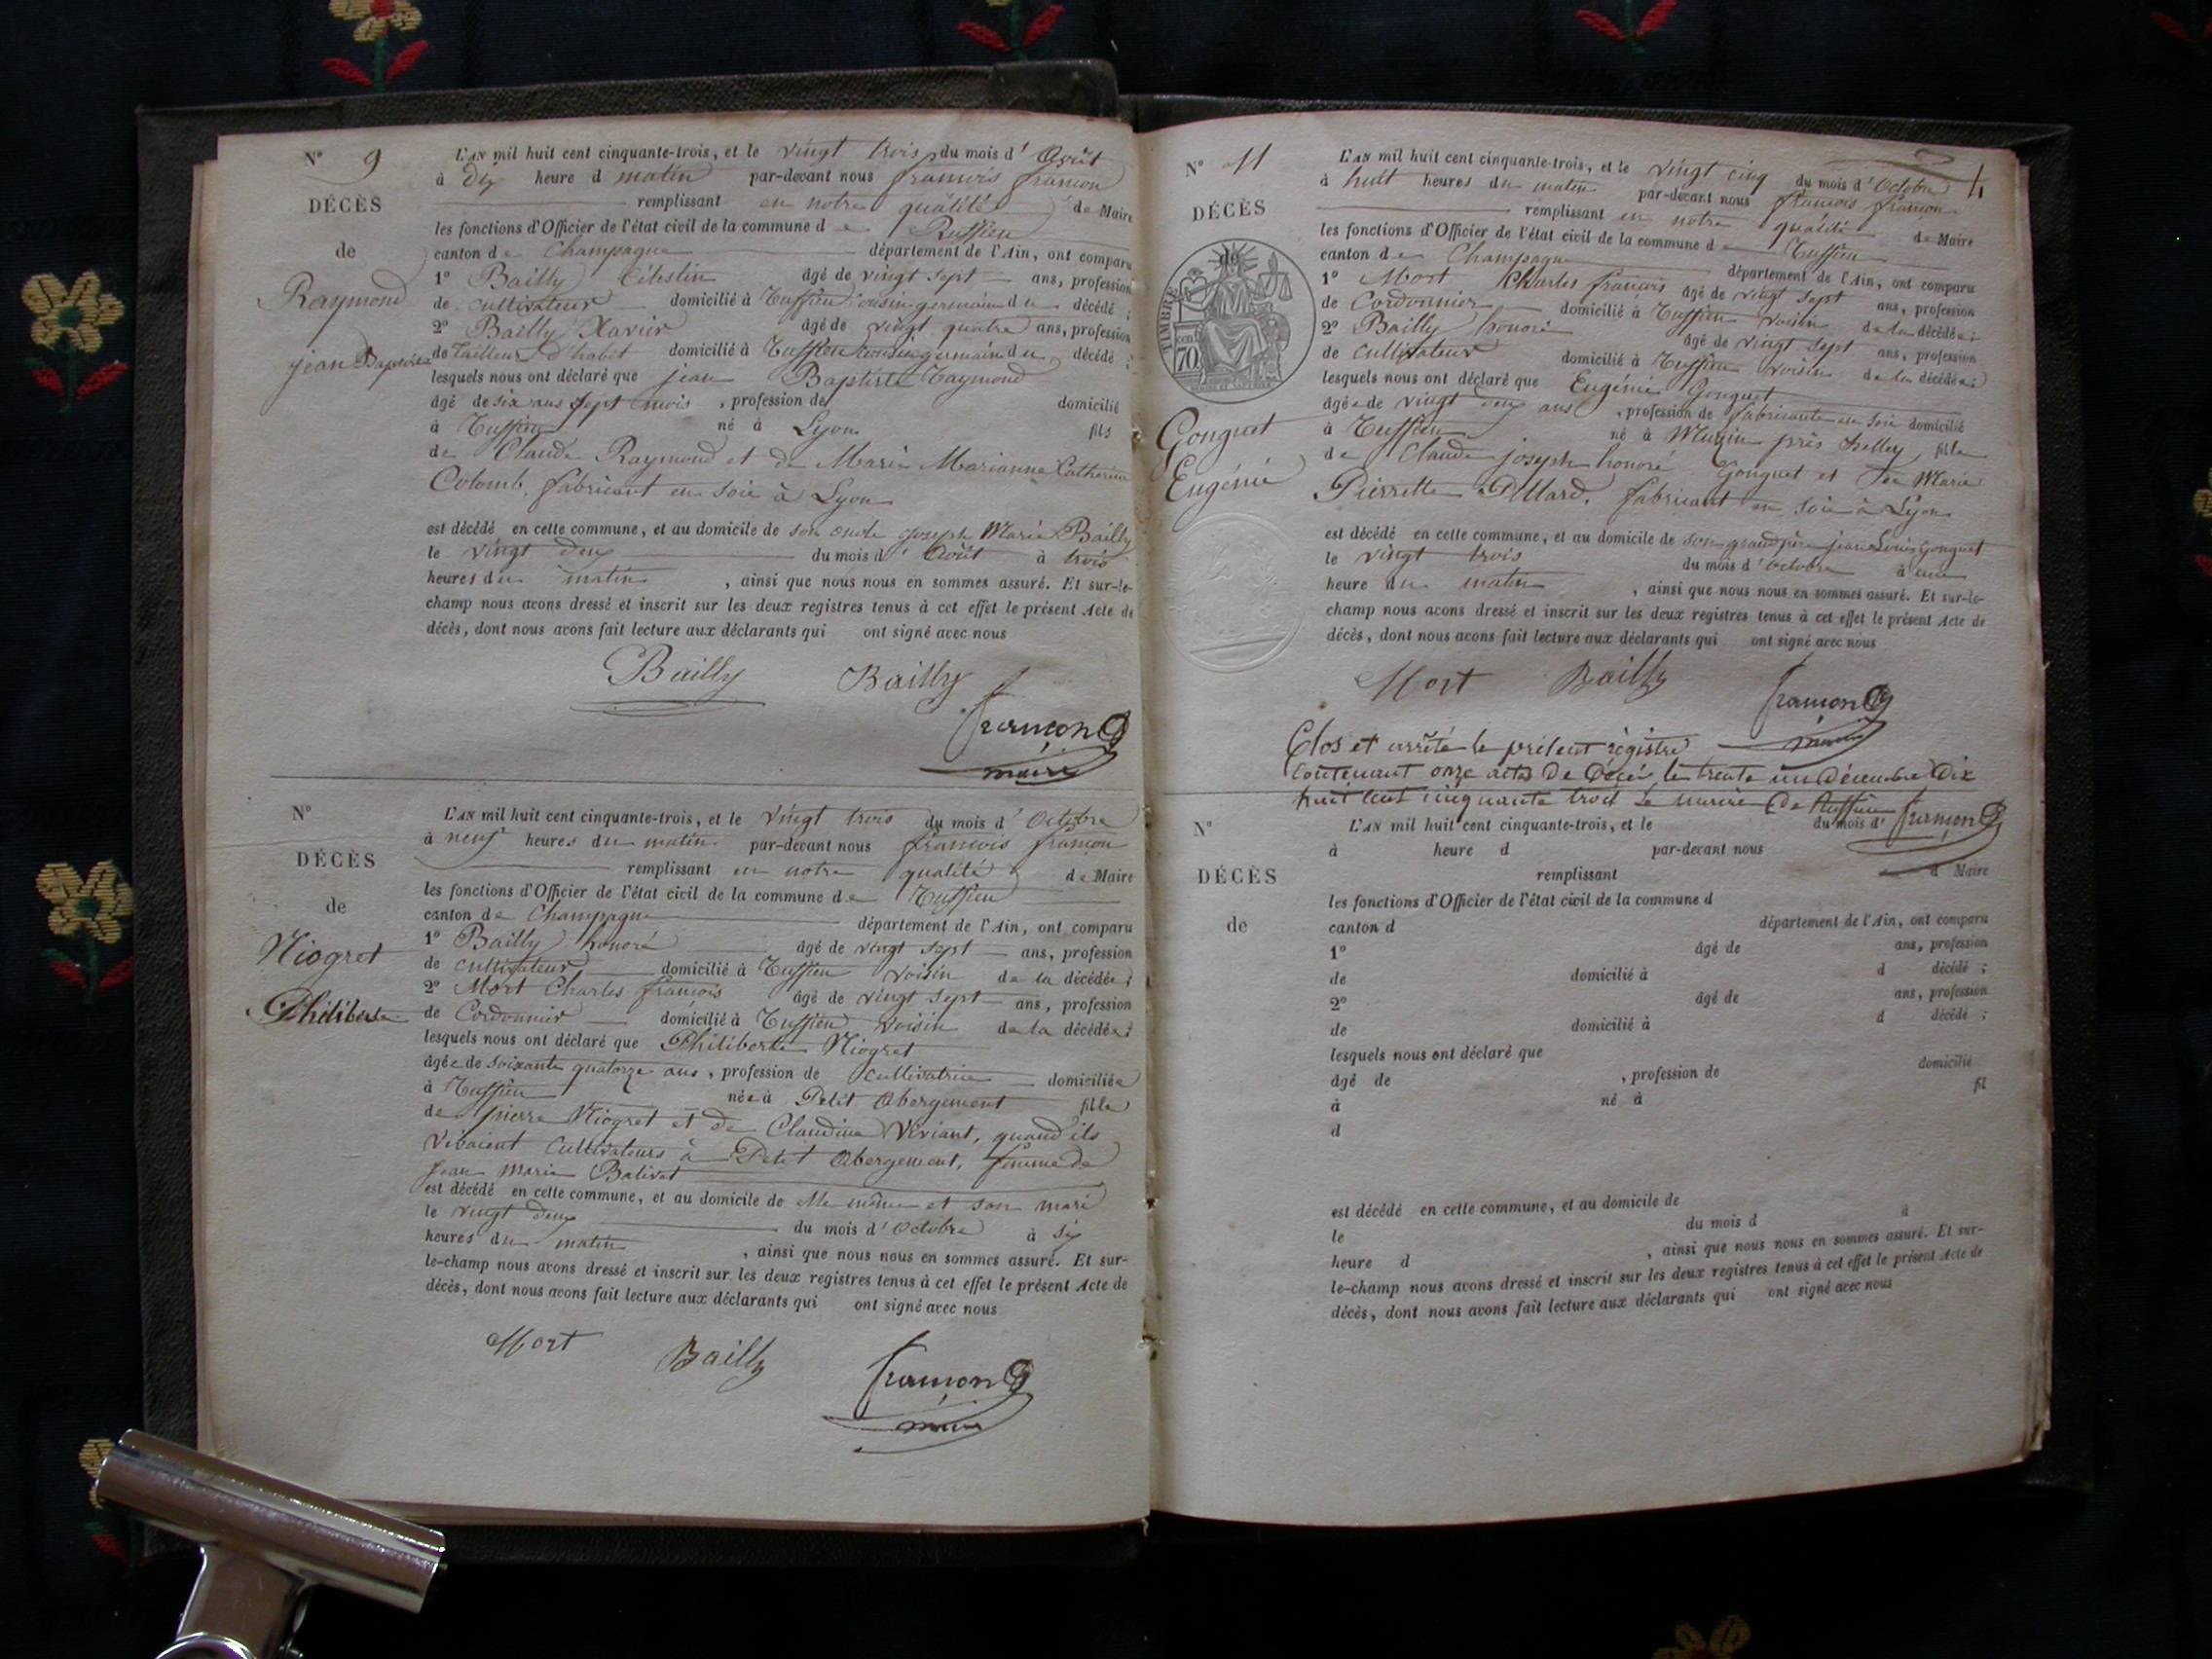 N° 9
DÉCÈS
de
Raymond
jean Baptiste
L'AN mil huit cent cinquante-trois, et le vingt trois du mois d' Août
à dix heure d matin par-devant nous françois françon
remplissant en notre qualité de Maire
les fonctions d'Officier de l'état civil de la commune de Ruffieu
canton de Champagne département de l'Ain, ont comparu
1° Bailly Célestin âgé de vingt sept ans, profession
de cultivateur domicilié à Ruffieu cousin germain du décédé ;
2° Bailly Xavier âgé de vingt quatre ans, profession
de tailleur d'habit domicilié à Ruffieu cousin germain du décédé ;
lesquels nous ont déclaré que jean Baptiste Raymond
âgé de six ans sept mois , profession de domicilié
à Ruffieu né à Lyon fils
de Claude Raymond et de Marie Marianne Catherine
Colomb, fabricant en soie à Lyon
est décédé en cette commune, et au domicile de son oncle joseph Marie Bailly
le vingt deux du mois d' Août à trois
heures du matin , ainsi que nous nous en sommes assuré. Et sur-le-
champ nous avons dressé et inscrit sur les deux registres tenus à cet effet le présent Acte de
décès, dont nous avons fait lecture aux déclarants qui ont signé avec nous
Bailly Bailly
françon
maire
N°
DÉCÈS
de
Niogret
Philiberte
L'AN mil huit cent cinquante-trois, et le vingt trois du mois d' Octobre
à neuf heures du matin par-devant nous françois françon
remplissant en notre qualité de Maire
les fonctions d'Officier de l'état civil de la commune de Ruffieu
canton de Champagne département de l'Ain, ont comparu
1° Bailly honoré âgé de vingt sept ans, profession
de cultivateur domicilié à Ruffieu voisin de la décédée ;
2° Mort Charles françois âgé de vingt sept ans, profession
de Cordonnier domicilié à Ruffieu voisin de la décédée ;
lesquels nous ont déclaré que Philiberte Niogret
âgée de soixante quatorze ans , profession de cultivatrice domiciliée
à Ruffieu née à Petit Abergement fille
de pierre Niogret et de Claudine Viviant, quand ils
vivaient cultivateurs à Petit Abergement, femme de
Jean Marie Balivet
est décédé en cette commune, et au domicile de elle même et son mari
le vingt deux du mois d' Octobre à six
heures du matin , ainsi que nous nous en sommes assuré. Et sur-
le-champ nous avons dressé et inscrit sur les deux registres tenus à cet effet le présent Acte de
décès, dont nous avons fait lecture aux déclarants qui ont signé avec nous
Mort Bailly
françon
maire
N° 11
DÉCÈS
de
TIMBRE
70
Gonguet
Eugénie
L'AN mil huit cent cinquante-trois, et le vingt cinq du mois d' Octobre
à huit heures du matin par-devant nous françois françon
remplissant en notre qualité de Maire
les fonctions d'Officier de l'état civil de la commune de Ruffieu
canton de Champagne département de l'Ain, ont comparu
1° Mort Charles françois âgé de vingt sept ans, profession
de Cordonnier domicilié à Ruffieu voisin de la décédée ;
2° Bailly honoré âgé de vingt sept ans, profession
de cultivateur domicilié à Ruffieu voisin de la décédée ;
lesquels nous ont déclaré que Eugénie Gonguet
âgée de vingt deux ans , profession de fabricante en soie domicilié
à Ruffieu né à Muzin près Belley, fille
de Claude joseph honoré Gonguet et Marie
Pierrette fabricant en soie à Lyon
est décédé en cette commune, et au domicile de son grand père jean Louis Gonguet
le vingt trois du mois d' Octobre à une
heure du matin , ainsi que nous nous en sommes assuré. Et sur-le-
champ nous avons dressé et inscrit sur les deux registres tenus à cet effet le présent Acte de
décès, dont nous avons fait lecture aux déclarants qui ont signé avec nous
Mort Bailly françon
maire
Clos et arrêté le présent régistre
Contenant onze actes de Décès, le trente un Décembre Dix
huit cent cinquante trois Le maire de Ruffieu françon
N°
DÉCÈS
de
L'AN mil huit cent cinquante-trois, et le du mois d'
à heure d par-devant nous
remplissant d Maire
les fonctions d'Officier de l'état civil de la commune d
canton d département de l'Ain, ont comparu
1° âgé de ans, profession
de domicilié à d décédé ;
2° âgé de ans, profession
de domicilié à d décédé ;
lesquels nous ont déclaré que
âgé de , profession de domicilié
à né à fil
d
est décédé en cette commune, et au domicile de
le du mois d à
heure d , ainsi que nous nous en sommes assuré. Et sur-
le-champ nous avons dressé et inscrit sur les deux registres tenus à cet effet le présent Acte de
décès, dont nous avons fait lecture aux déclarants qui ont signé avec nous